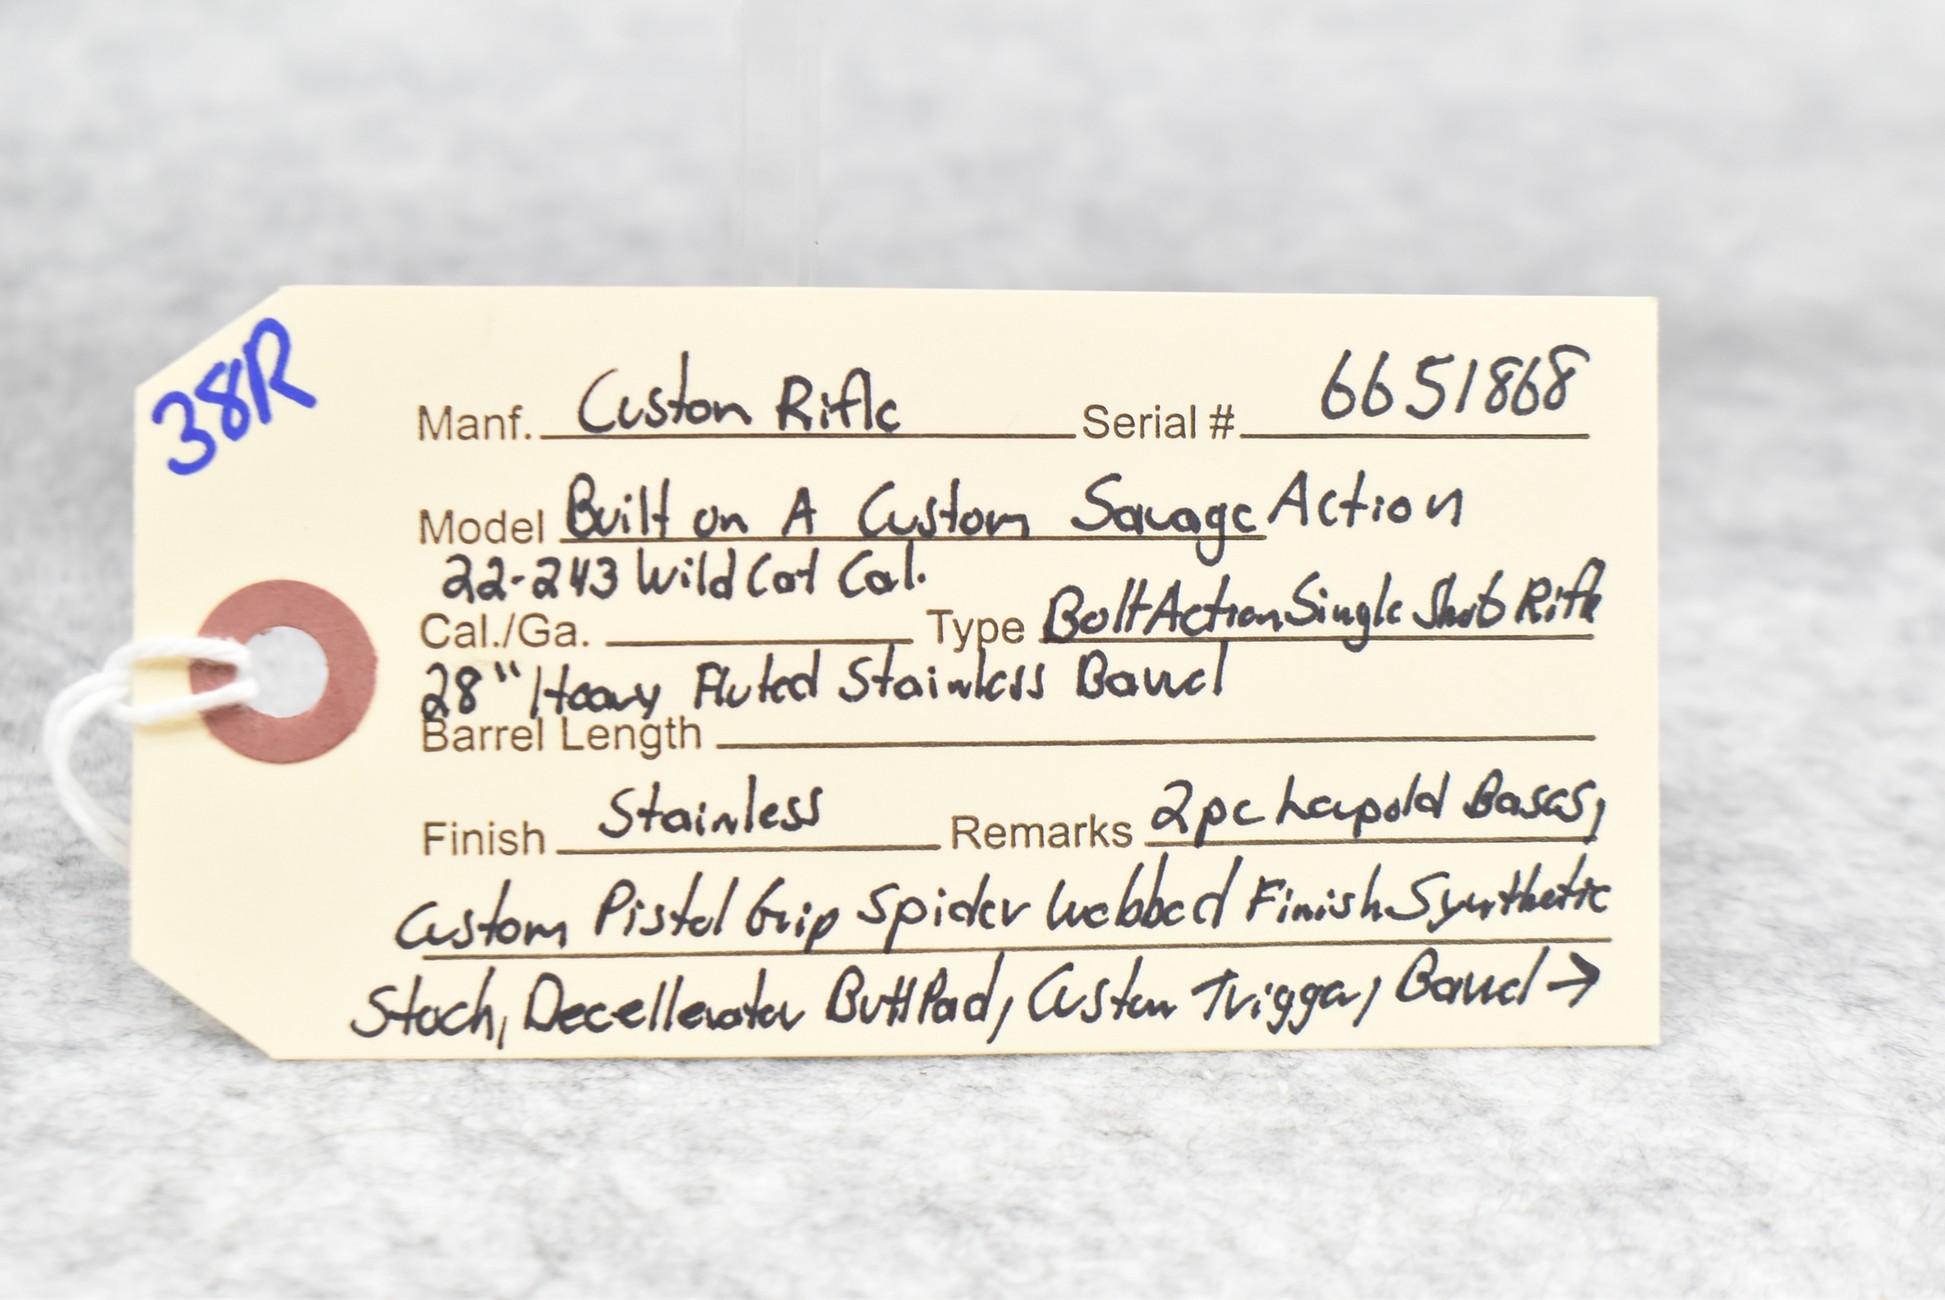 38R
Manf. Custom Rifle Serial # 6651868
Model Built on A Custom Savage Action
22-243 Wild Cat Cal.
Cal./Ga. Type Bolt Action Single Shot Rifle
28" Heavy Fluted Stainless Barrel
Barrel Length
Finish Stainless Remarks 2pc Leupold Bases,
Custom Pistol Grip Spider Webbed Finish Synthetic
Stock, Decellerator Butt Pad, Custom Trigger, Barrel →